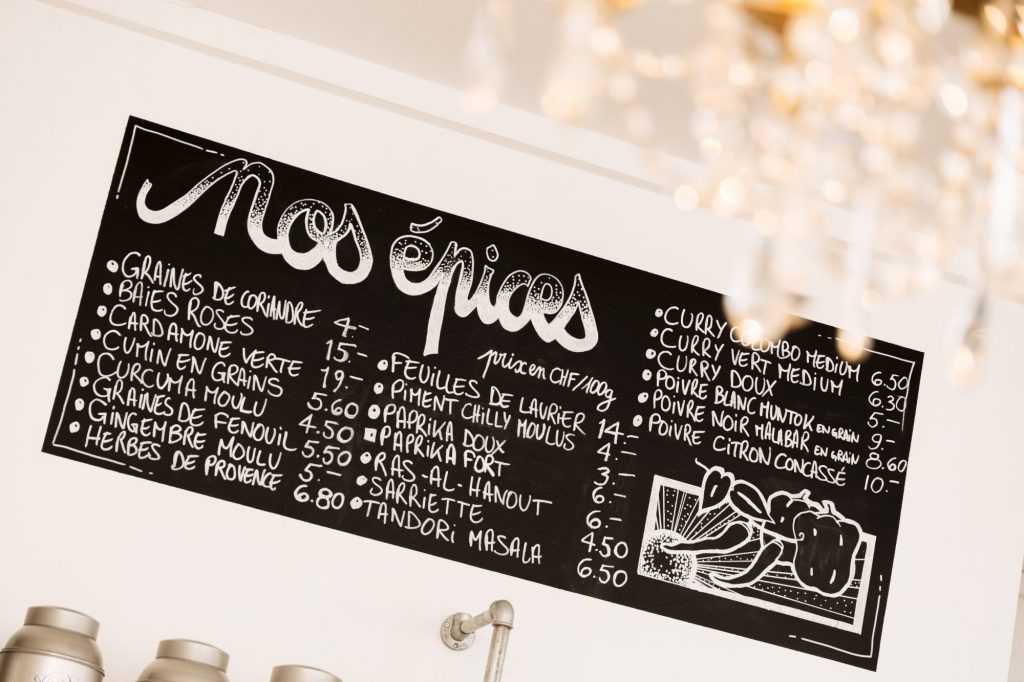 Nos épices
prix en CHF/100g
• GRAINES DE CORIANDRE 4.-
• BAIES ROSES 15.-
• CARDAMONE VERTE 19.-
• CUMIN EN GRAINS 5.60
• CURCUMA MOULU 4.50
• GRAINES DE FENOUIL 5.50
• GINGEMBRE MOULU 5.-
• HERBES DE PROVENCE 6.80
• FEUILLES DE LAURIER 14.-
• PIMENT CHILLY MOULUS 4.-
• PAPRIKA DOUX 3.-
• PAPRIKA FORT 6.-
• RAS-AL-HANOUT 6.-
• SARRIETTE 4.50
• TANDORI MASALA 6.50
• CURRY COLOMBO MEDIUM 6.50
• CURRY VERT MEDIUM 6.30
• CURRY DOUX 5.-
• POIVRE BLANC MUNTOK EN GRAIN 9.-
• POIVRE NOIR MALABAR EN GRAIN 8.60
• POIVRE CITRON CONCASSÉ 10.-